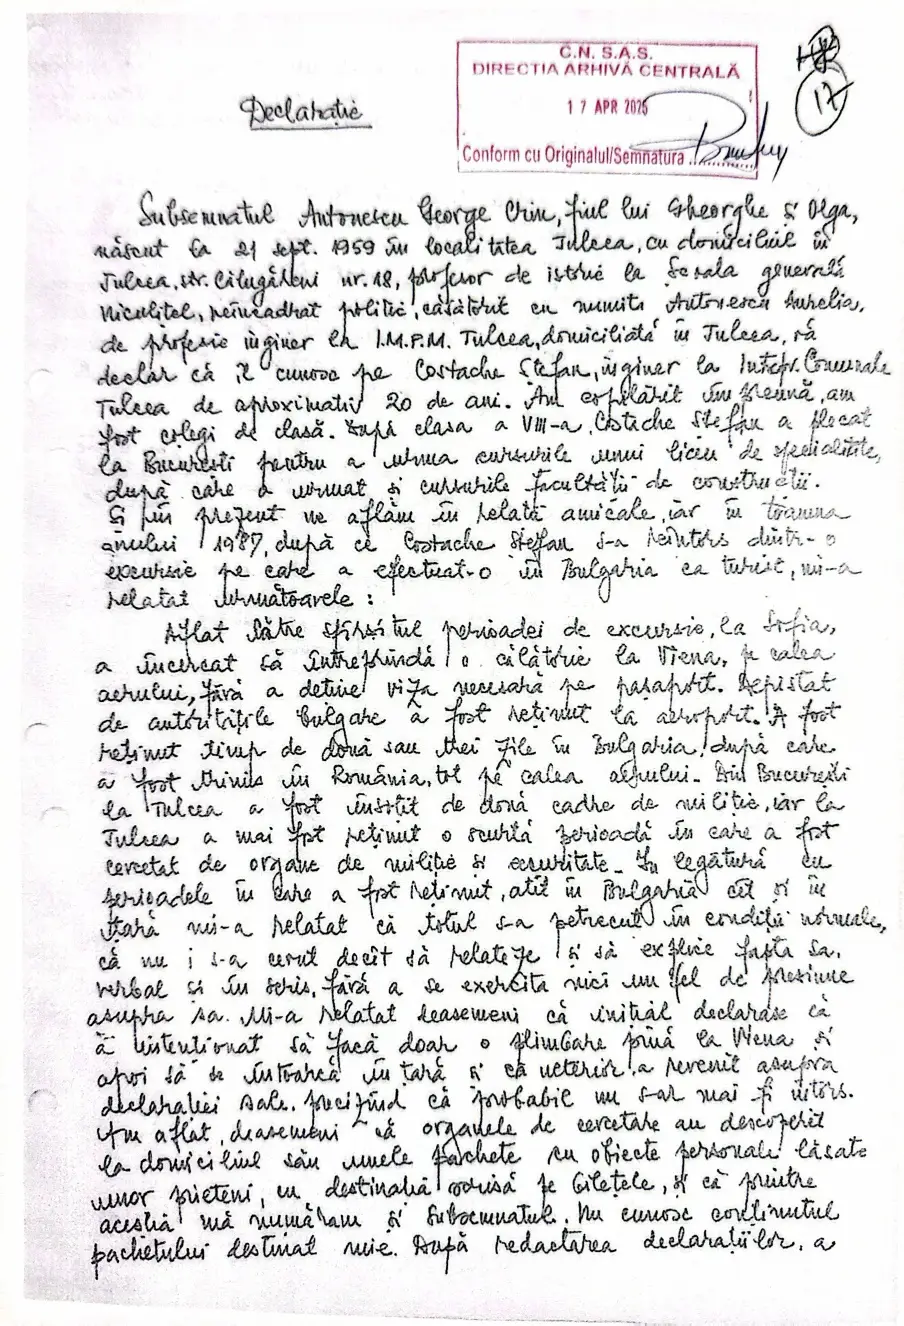 C.N.S.A.S.
DIRECȚIA ARHIVĂ CENTRALĂ
17 APR 2025
Conform cu Originalul/Semnatura
17
Declarație
Subsemnatul Antonescu George Crin, fiul lui Gheorghe și Olga,
născut la 21 sept. 1959 în localitatea Tulcea, cu domiciliul în
Tulcea, str. Călugăreni nr. 18, profesor de istorie la Școala generală
Niculițel, neîncadrat politic, căsătorit cu numita Antonescu Aurelia,
de profesie inginer la I.M.P.M. Tulcea, domiciliată în Tulcea, vă
declar că îl cunosc pe Costache Ștefan, inginer la Intrepr. Comunale
Tulcea de aproximativ 20 de ani. Am copilărit împreună, am
fost colegi de clasă. După clasa a VIII-a, Costache Ștefan a plecat
la București pentru a urma cursurile unui liceu de specialitate,
după care a urmat și cursurile facultății de construcții.
Și în prezent ne aflăm în relații amicale, iar în toamna
anului 1987, după ce Costache Ștefan s-a reîntors dintr-o
excursie pe care a efectuat-o în Bulgaria ca turist, mi-a
relatat următoarele :
Aflat către sfîrșitul perioadei de excursie, la Sofia,
a încercat să întreprindă o călătorie la Viena, pe calea
aerului, fără a deține viza necesară pe pașaport. Depistat
de autoritățile bulgare a fost reținut la aeroport. A fost
reținut timp de două sau trei zile în Bulgaria, după care
a fost trimis în România, tot pe calea aerului. Din București
la Tulcea a fost însoțit de două cadre de miliție, iar la
Tulcea a mai fost reținut o scurtă perioadă în care a fost
cercetat de organe de miliție și securitate. În legătură cu
perioadele în care a fost reținut, atît în Bulgaria cît și în
țară mi-a relatat că totul s-a petrecut în condiții normale,
că nu i s-a cerut decît să relateze și să explice fapta sa,
verbal și în scris, fără a se exercita nici un fel de presiune
asupra sa. Mi-a relatat deasemeni că inițial declarase că
a intenționat să facă doar o plimbare pînă la Viena și
apoi să se întoarcă în țară și că ulterior a revenit asupra
declarației sale, precizînd că probabil nu s-ar mai fi întors.
Am aflat, deasemeni că organele de cercetare au descoperit
la domiciliul său unele pachete cu obiecte personale lăsate
unor prieteni, cu destinația scrisă pe bilețele, și că printre
aceștia mă număram și subsemnatul. Nu cunosc conținutul
pachetului destinat mie. După redactarea declarațiilor, a